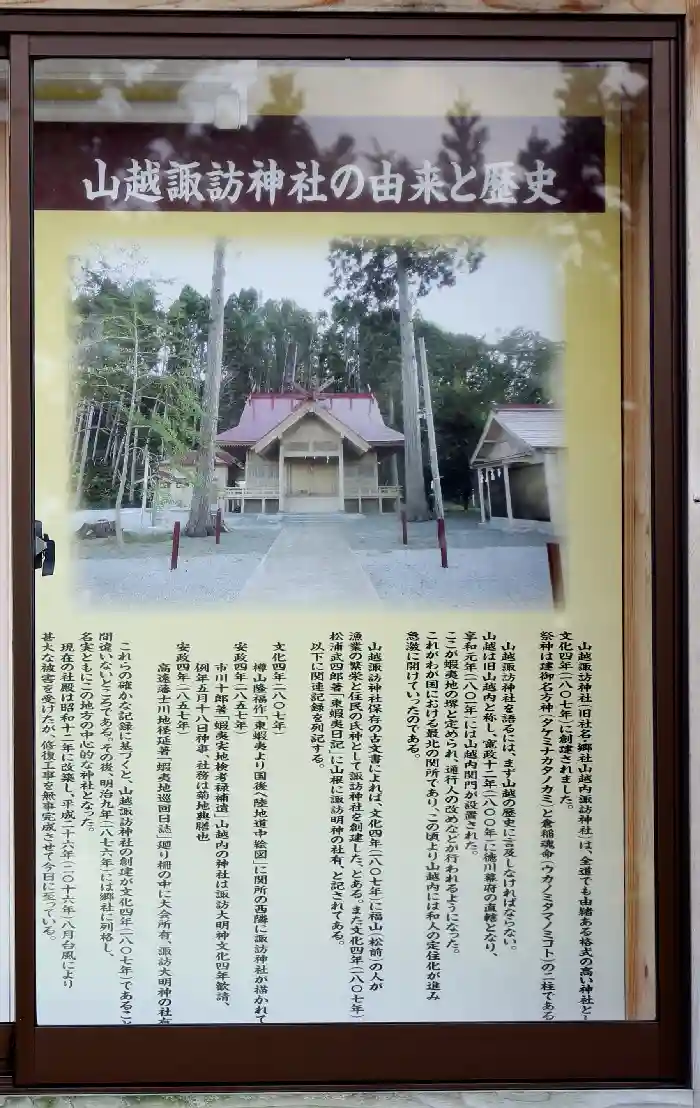 山越諏訪神社の由来と歴史
山越諏訪神社（旧社名・郷社山越内諏訪神社）は、全道でも由緒ある格式の高い神社と
文化四年（一八〇七年）に創建されました。
祭神は建御名方神（タケミナカタノカミ）と倉稲魂命（ウカノミタマノミコト）の二柱である
山越諏訪神社を語るには、まず山越の歴史に言及しなければならない。
山越は旧山越内と称し、寛政十二年（一八〇〇年）に徳川幕府の直轄となり、
享和元年（一八〇一年）には山越内関門が設置された。
ここが蝦夷地の堺と定められ、通行人の改めなどが行われるようになった。
これがわが国における最北の関所であり、この頃より山越内には和人の定住化が進み
急激に開けていったのである。
山越諏訪神社保存の古文書によれば、文化四年（一八〇七年）に福山（松前）の人が
漁業の繁栄と住民の氏神として諏訪神社を創建した、とある。また文化四年（一八〇七年）
松浦武四郎著「東蝦夷日記」に山根に諏訪明神の社有、と記されてある。
以下に関連記録を列記する。
文化四年（一八〇七年）
樽山隆福作「東蝦夷より国後へ陸地道中絵図」に関所の西隣に諏訪神社が描かれて
安政四年（一八五七年）
市川十郎著「蝦夷実地検考録補遺」山越内の神社は諏訪大明神文化四年歓請、
例年五月十八日神事、社務は菊地典膳也
安政四年（一八五七年）
高遠藩士川地径延著「蝦夷地巡回日誌」廻り柵の中に大会所有、諏訪大明神の社有
これらの確かな記録に基づくと、山越諏訪神社の創建が文化四年（一八〇七年）であること
間違いないところである。その後、明治九年（一八七六年）には郷社に列格し、
名実ともにこの地方の中心的な神社となった。
現在の社殿は昭和十二年に改築し、平成二十六年（二〇十六年）八月台風により
甚大な被害を受けたが、修復工事を無事完成させて今日に至っている。